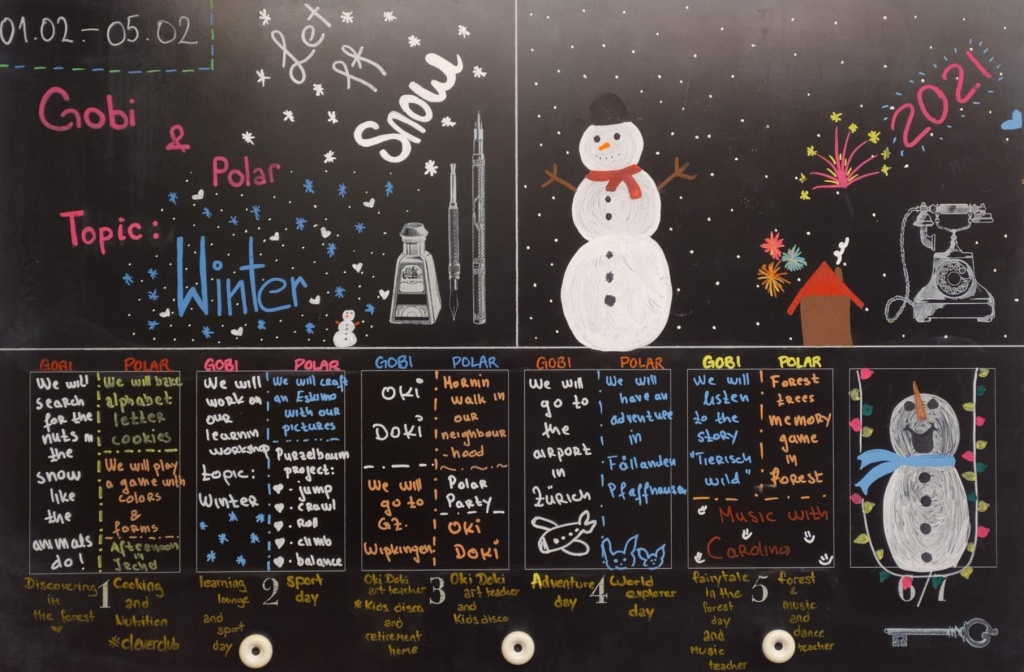 01.02 - 05.02
Let
It
Snow
Gobi
&
Polar
Topic:
Winter
2021
GOBI
We will
search
for the
nuts in
the
snow
like
the
animals
do!
POLAR
We will bake
alphabet
letter
cookies
We will play
a game with
colors
&
forms
Afternoon
in
GOBI
We will
work on
our
learnin
workshop
topic:
Winter
POLAR
We will craft
an Eskimo
with our
pictures
Purzelbaum
project:
jump
crawl
roll
climb
balance
GOBI
OKI
DOKI
We will
go to
GZ.
Wipkingen!
POLAR
Mornin
walk in
our
neighbour
-hood
Polar
Party
OKI
DOKI
GOBI
We will
go to
the
airport
in
Zürich
POLAR
We will
have an
adventure
in
Fällanden
Pfaffhausen
GOBI
We will
listen
to the
story
"Tierisch
wild"
POLAR
Forest
trees
memory
game
in
forest
Music with
Carolina
Discovering
in
the forest
1
Cooking
and
Nutrition
*cleverclub
learning
lounge
and
sport
day
2
sport
day
Oki Doki
art teacher
*Kids disco
and
retirement
home
3
Oki Doki
art teacher
and
Kids disco
Adventure
day
4
World
explorer
day
fairytale
in the
forest
day
and
Music
teacher
5
forest
&
music
and
dance
teacher
6/7